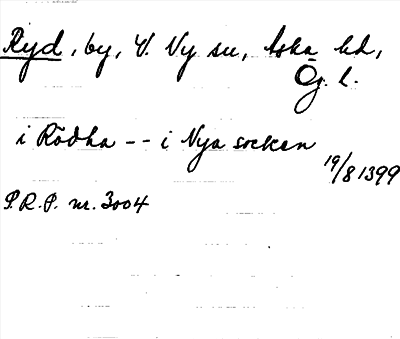 Ryd, by, V. Ny sn, Aska hd,
Ög. l.
i Rödha -- i Nya socken
19/8 1399
P.R.P. nr. 3004